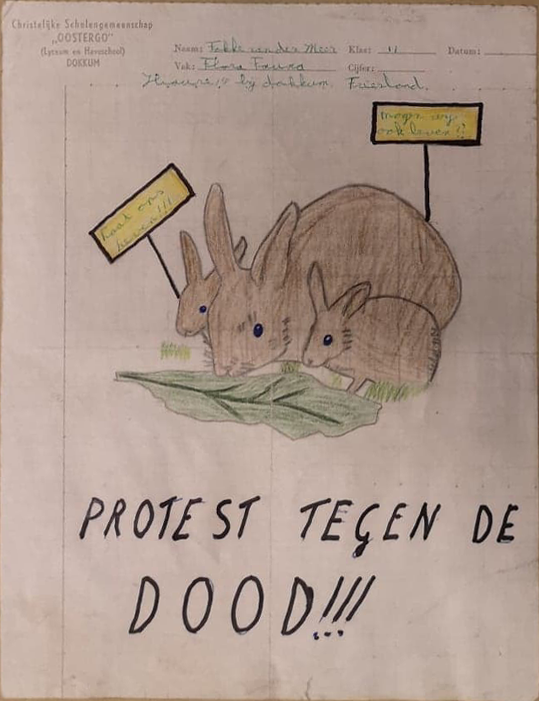 Christelijke Scholengemeenschap
„OOSTERGO"
(Lyceum en Havoschool)
DOKKUM
Naam: Fokke van der Meer Klas: 11 Datum:
Vak: Flora Fauna Cijfer:
bij dokkum. Friesland.
mogen wij
ook leven??
Laat ons
leven!!!
PROTEST TEGEN DE
DOOD!!!